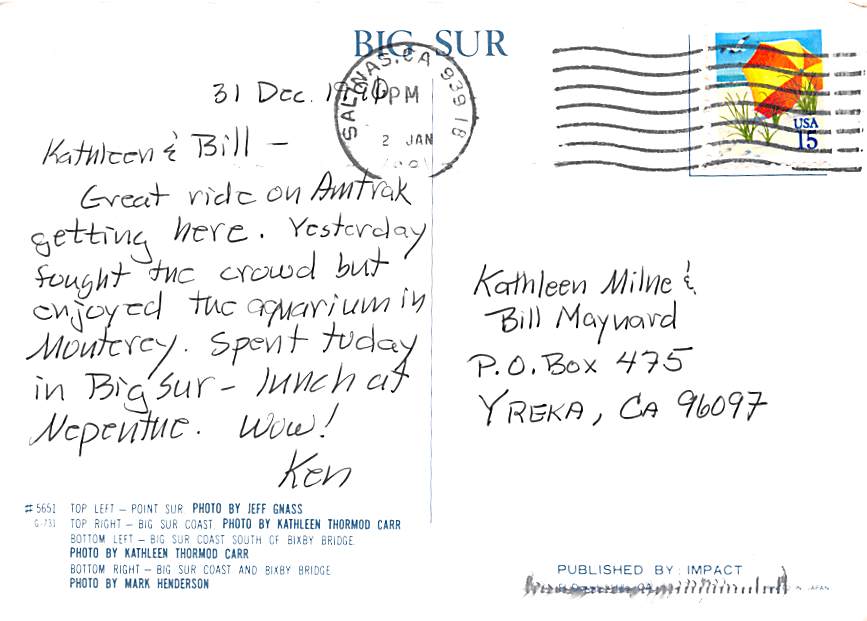 BIG SUR
31 Dec.
SALINAS, CA 93918
PM
2 JAN
USA
15
Kathleen & Bill –
Great ride on Amtrak
getting here. Yesterday
fought the crowd but
enjoyed the aquarium in
Monterey. Spent today
in Big Sur – lunch at
Nepenthe. Wow!
Ken
Kathleen Milne &
Bill Maynard
P.O. Box 475
YREKA, CA 96097
#5651 TOP LEFT – POINT SUR PHOTO BY JEFF GNASS
G-731 TOP RIGHT – BIG SUR COAST PHOTO BY KATHLEEN THORMOD CARR
BOTTOM LEFT – BIG SUR COAST SOUTH OF BIXBY BRIDGE
PHOTO BY KATHLEEN THORMOD CARR
BOTTOM RIGHT – BIG SUR COAST AND BIXBY BRIDGE
PHOTO BY MARK HENDERSON
PUBLISHED BY: IMPACT
IN JAPAN